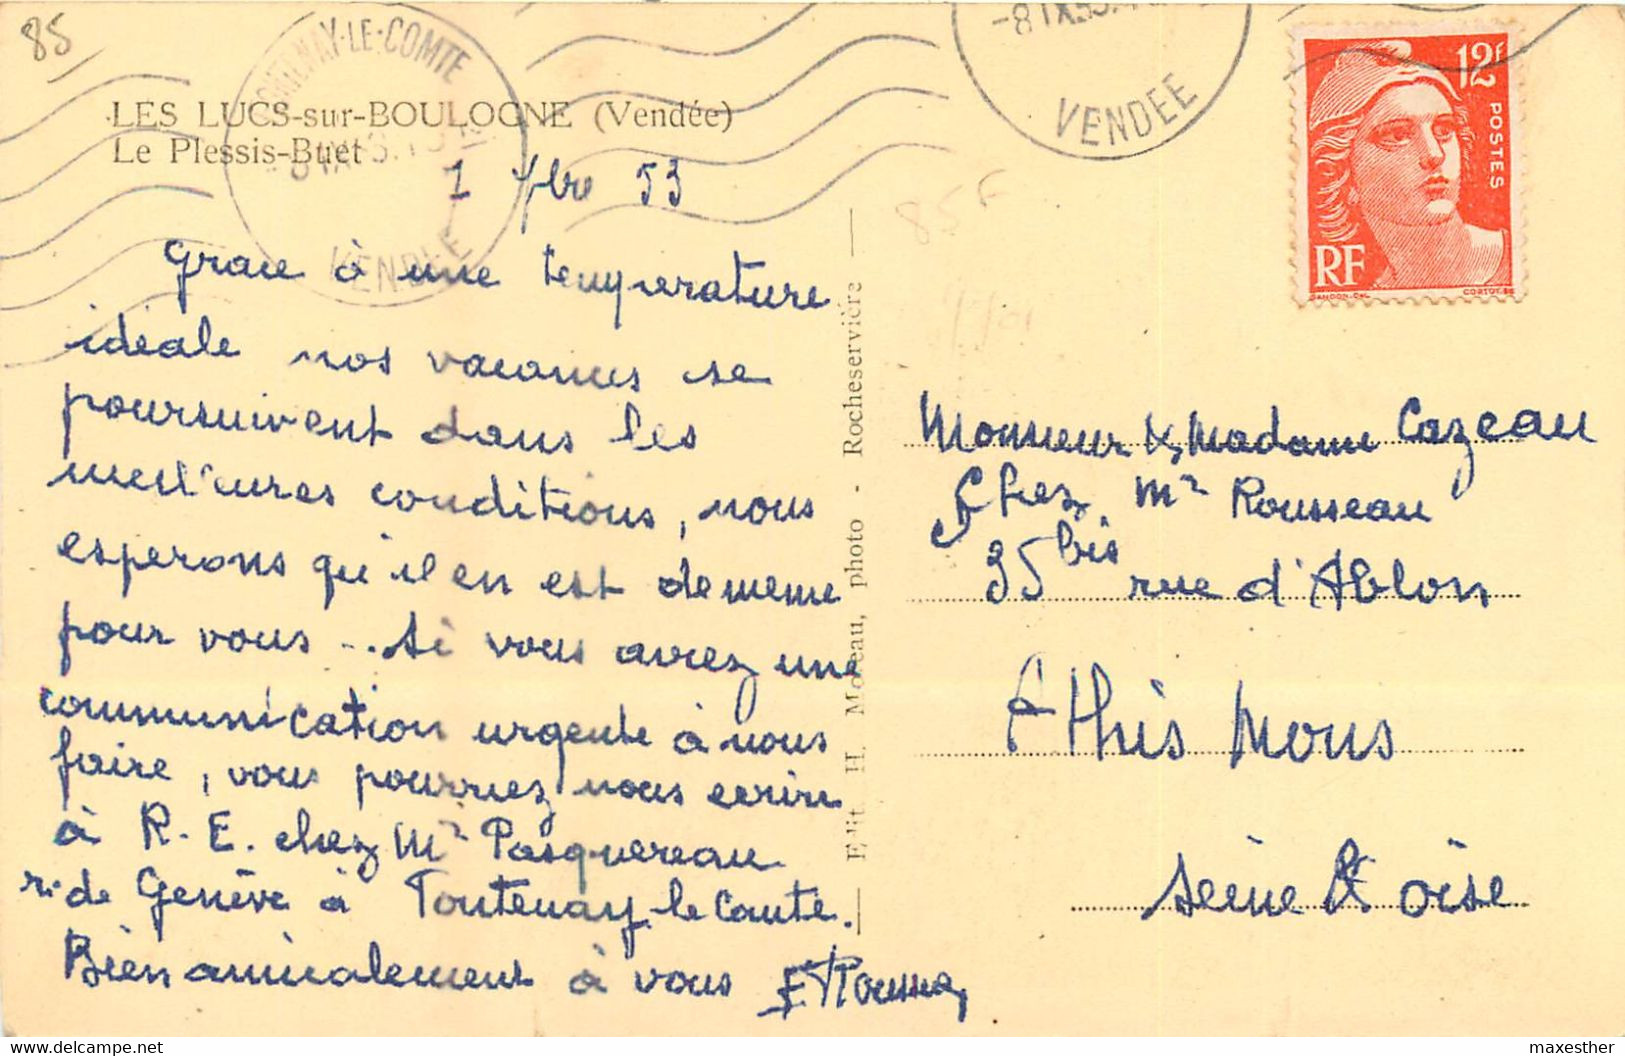 85
FONTENAY-LE-COMTE
VENDEE
-8 IX 53
VENDEE
12F
POSTES
RF
GANDON.DEL
CORTOT.SC
LES LUCS-sur-BOULOGNE (Vendée)
Le Plessis-Buet
1 7bre 53
Grace à une temperature
idéale nos vacances se
poursuivent dans les
meilleures conditions, nous
esperons qu'il en est de meme
pour vous... Si vous aviez une
communication urgente à nous
faire, vous pourriez nous ecrire
à R. E. chez Mr Pasquereau
r. de Genève à Fontenay le Comte.
Bien amicalement à vous
Edit H. Moreau, photo - Rocheservière
85 F
Monsieur & Madame Cazeau
Chez Mr Rousseau
35 bis rue d'Ablon
Athis Mons
Seine & oise
maxesther